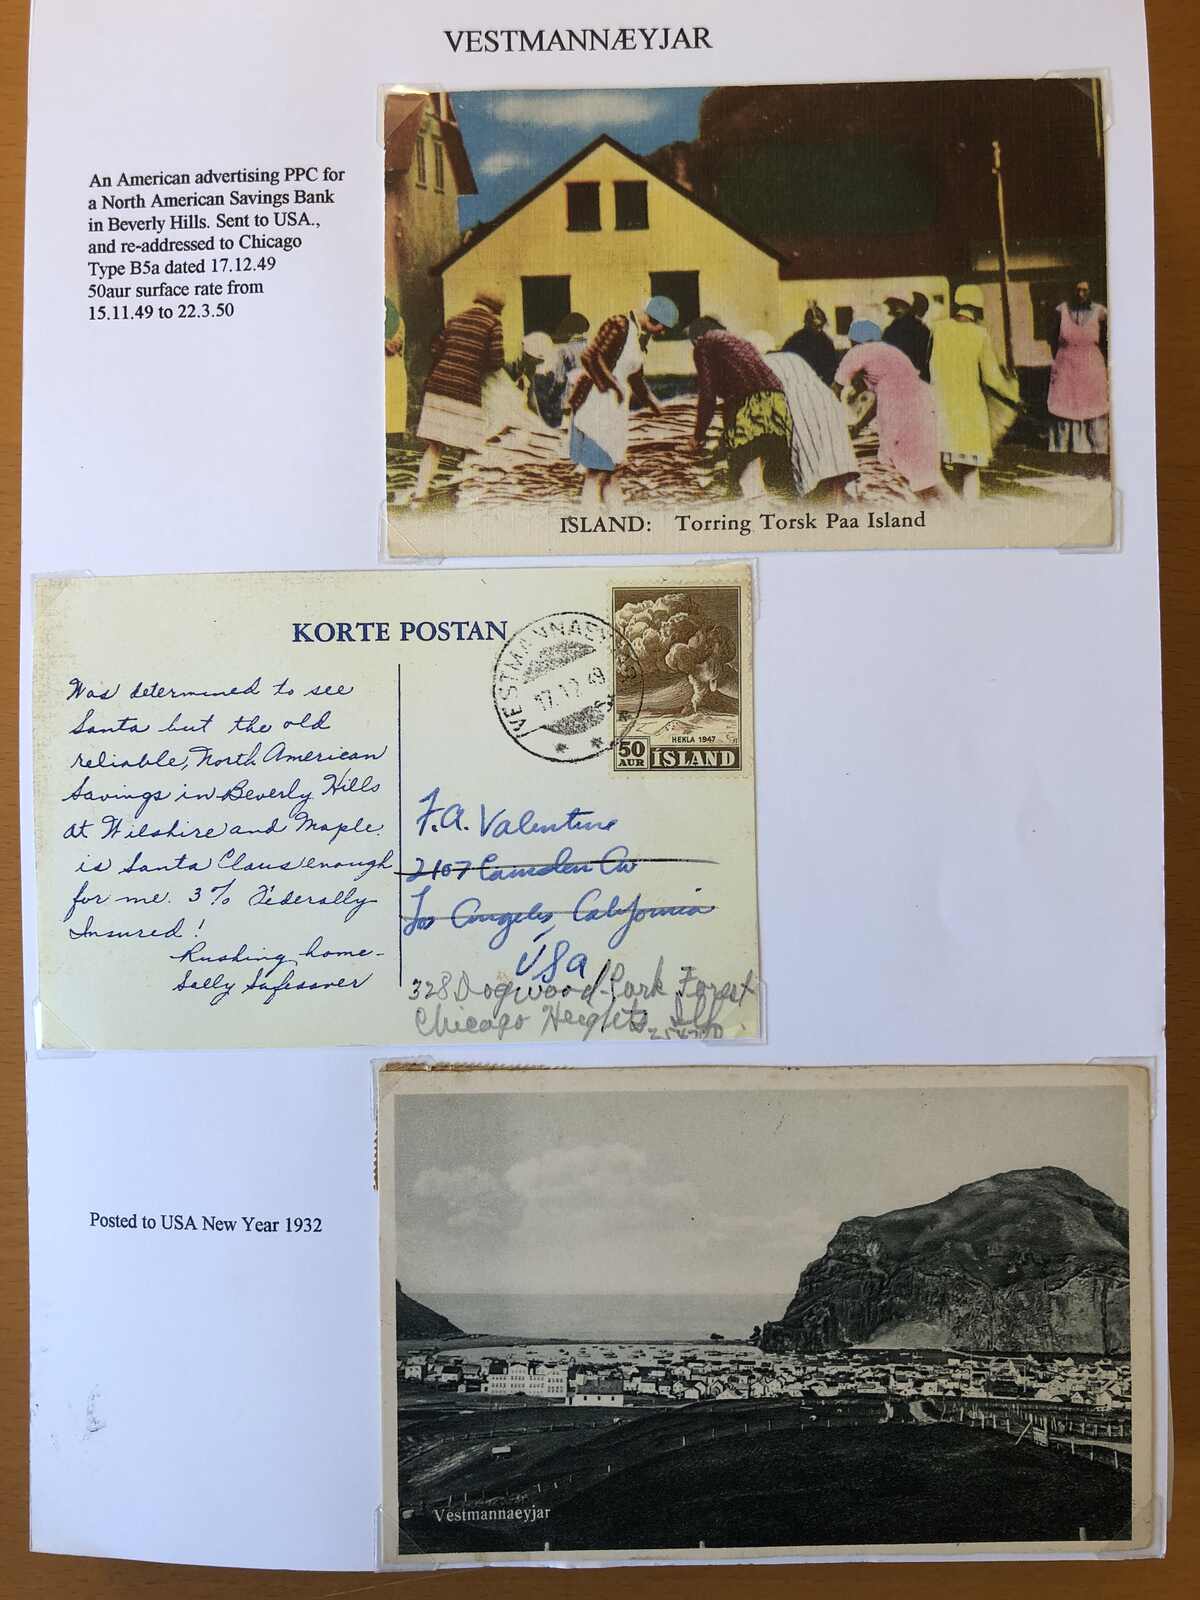 VESTMANNÆYJAR
An American advertising PPC for
a North American Savings Bank
in Beverly Hills. Sent to USA.,
and re-addressed to Chicago
Type B5a dated 17.12.49
50aur surface rate from
15.11.49 to 22.3.50
ISLAND: Torring Torsk Paa Island
KORTE POSTAN
VESTMANNAEYJAR
17.12.49
HEKLA 1947
50 AUR ÍSLAND
Was determined to see
Santa but the old
reliable, North American
Savings in Beverly Hills
at Wilshire and Maple.
is Santa Claus enough
for me. 3% Federally
Insured!
Rushing home-
Sally Safesaver
F.A. Valentine
2107 Camden Av
Los Angeles, California
USA
328 Dogwood-Park Forest
Chicago Heights, Ill
Posted to USA New Year 1932
Vestmannaeyjar